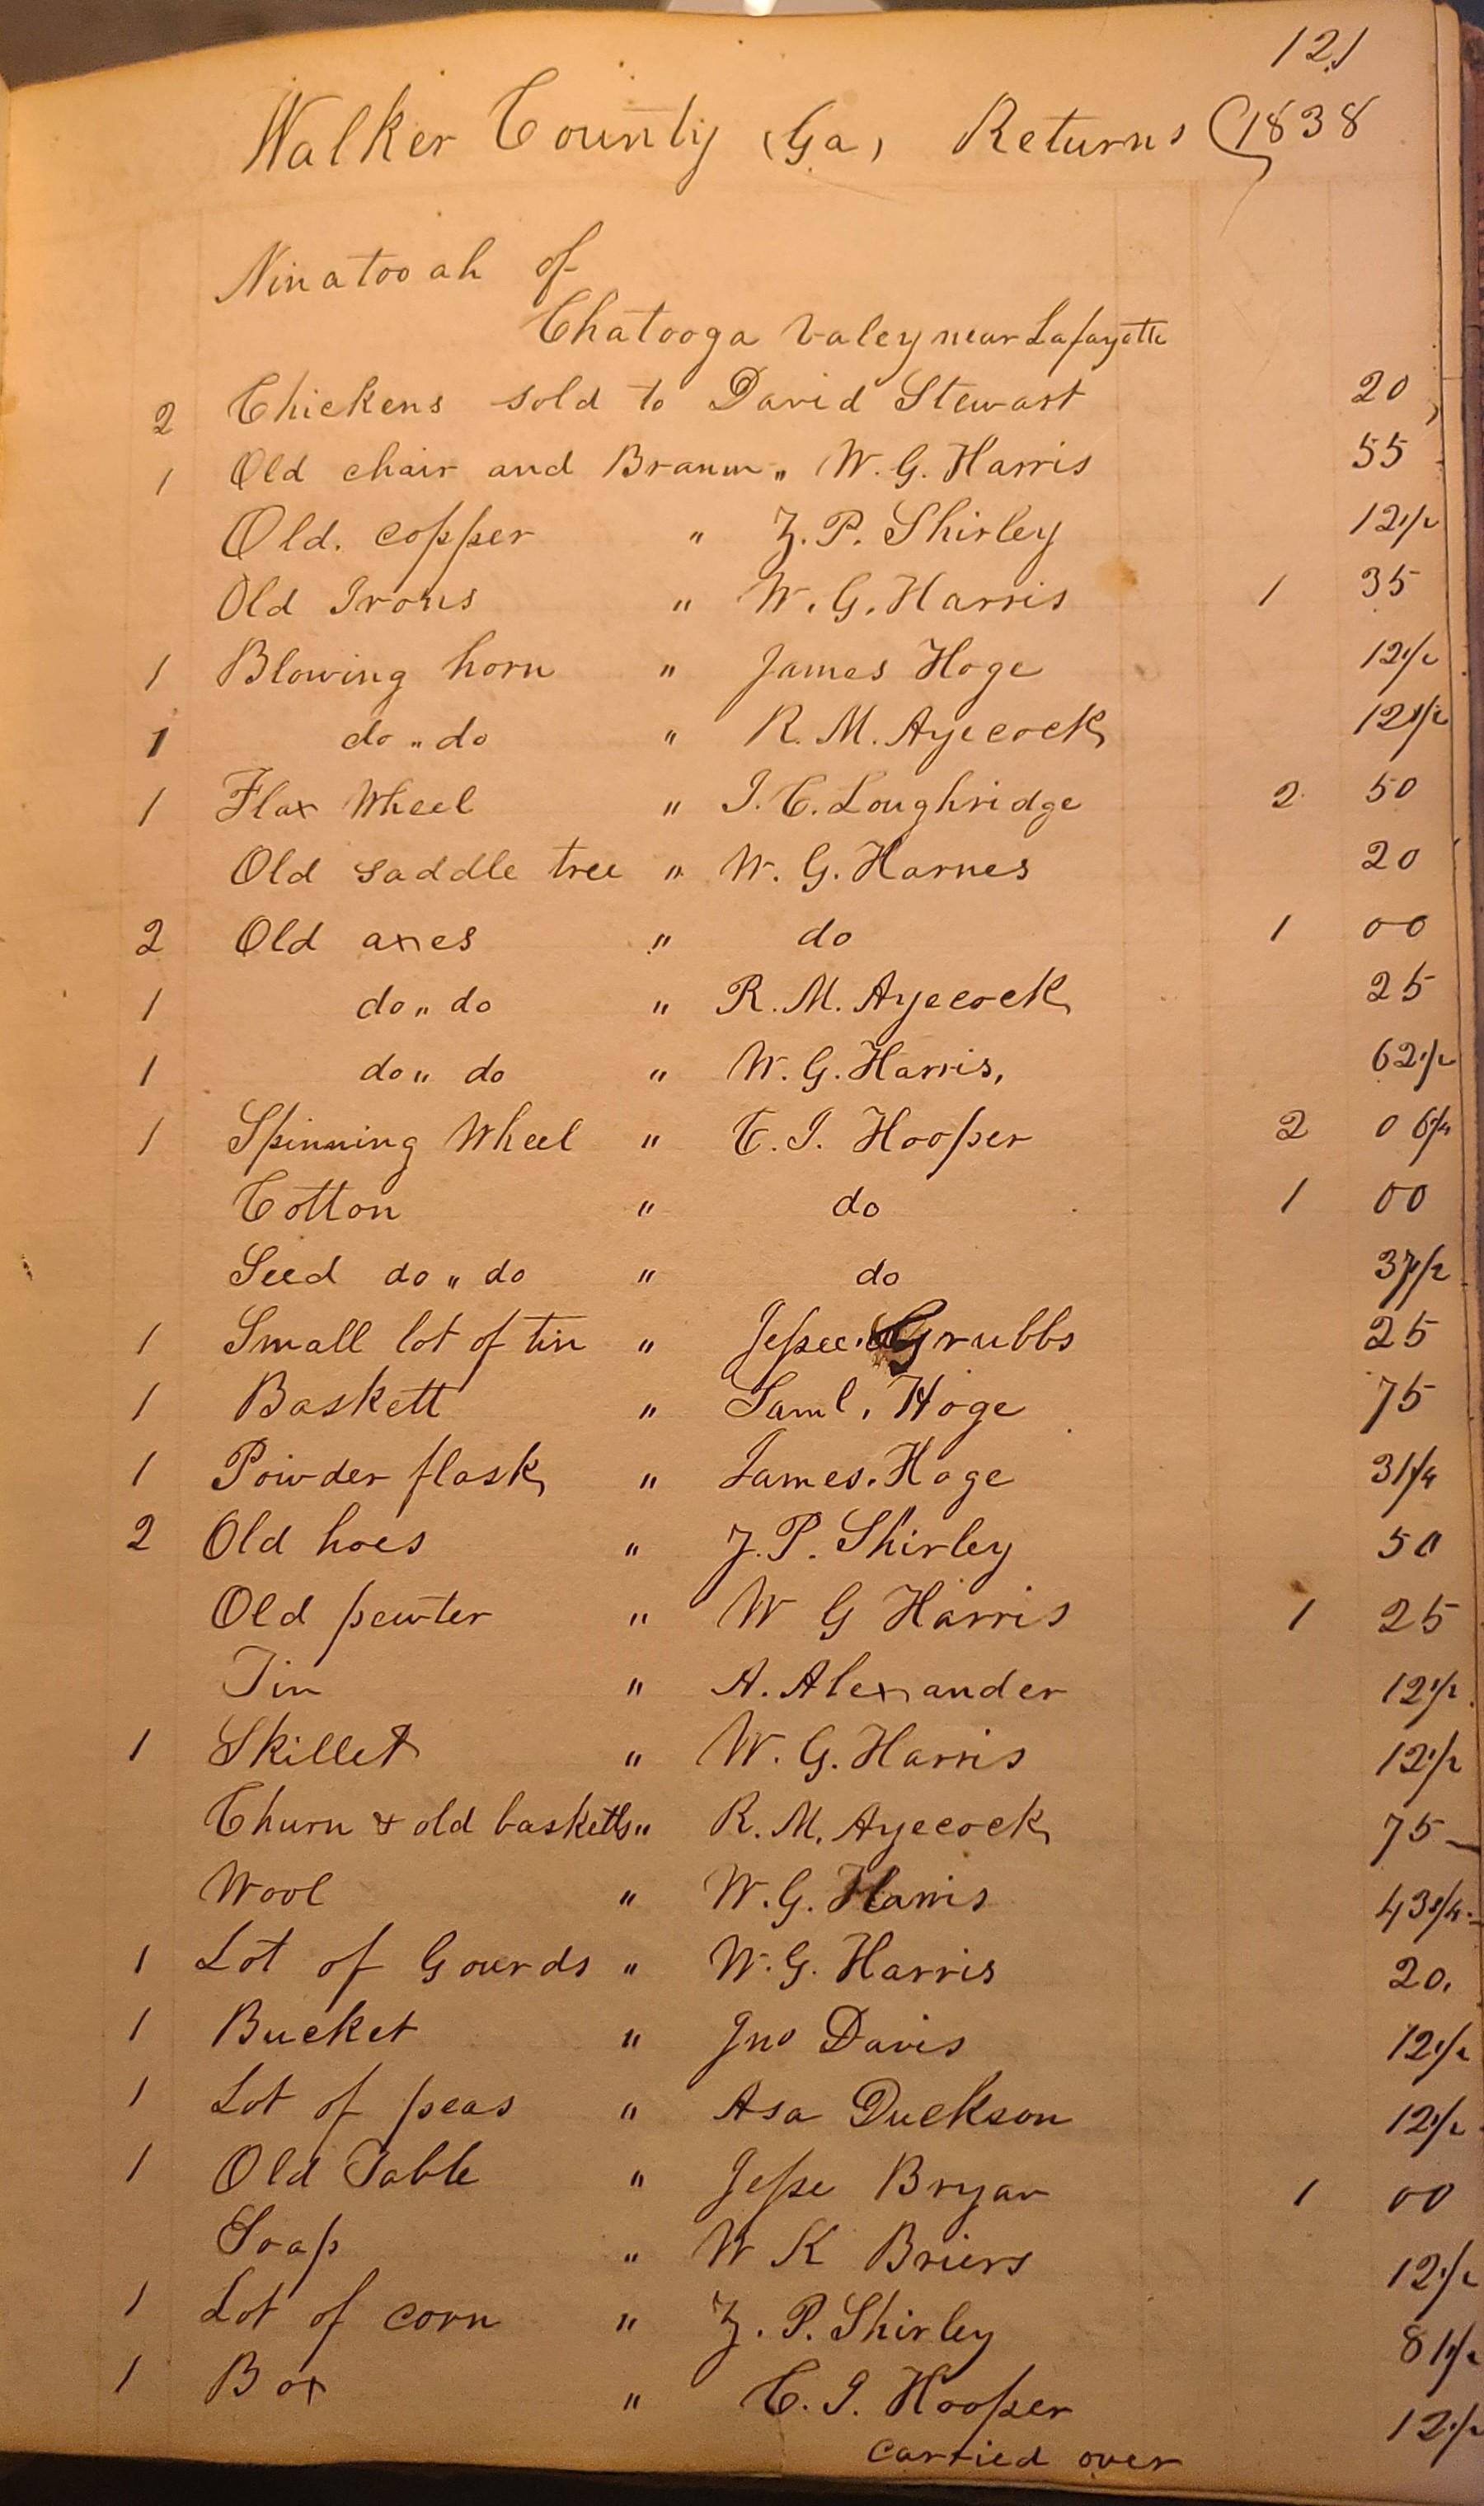 121
Walker County (Ga) Returns (1838
Ninatooah of
Chatooga Valey near Lafayette
2 Chickens sold to David Stewart 20
1 Old chair and " W. G. Harris 55
Old. copper " Z. P. Shirley 12 1/2
Old Irons " W. G. Harris 1 35
1 Blowing horn " James Hoge 12 1/2
1 do " do " R. M. Ayecock 12 1/2
1 Flax Wheel " I. C. Loughridge 2 50
Old saddle tree " W. G. Harnes 20
2 Old axes " do 1 00
1 do " do " R. M. Ayecock 25
1 do " do " W. G. Harris, 62 1/2
1 Spinning Wheel " C. I. Hooper 2 06 1/4
Cotton " do 1 00
Seed do " do " do 37 1/2
1 Small lot of tin " Jessee Grubbs 25
1 Baskett " Saml. Hoge 75
1 Powder flask " James. Hoge 31 1/4
2 Old hoes " Z. P. Shirley 50
Old pewter " W G Harris 1 25
Tin " A. Alexander 12 1/2
1 Skillet " W. G. Harris 12 1/2
Churn & old basketts " R. M. Ayecock 75
Wool " W. G. Harris 43 3/4
1 Lot of Gourds " W. G. Harris 20.
1 Bucket " Jno Davis 12 1/2
1 Lot of peas " Asa Duckson 12 1/2
1 Old Table " Jesse Bryan 1 00
Soap " W K Briers 12 1/2
1 Lot of corn " Z. P. Shirley 81 1/2
1 Box " C. I. Hooper 12 1/2
carried over